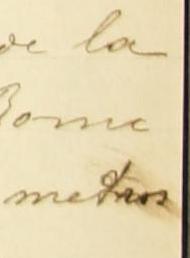 de la
Rome
metros